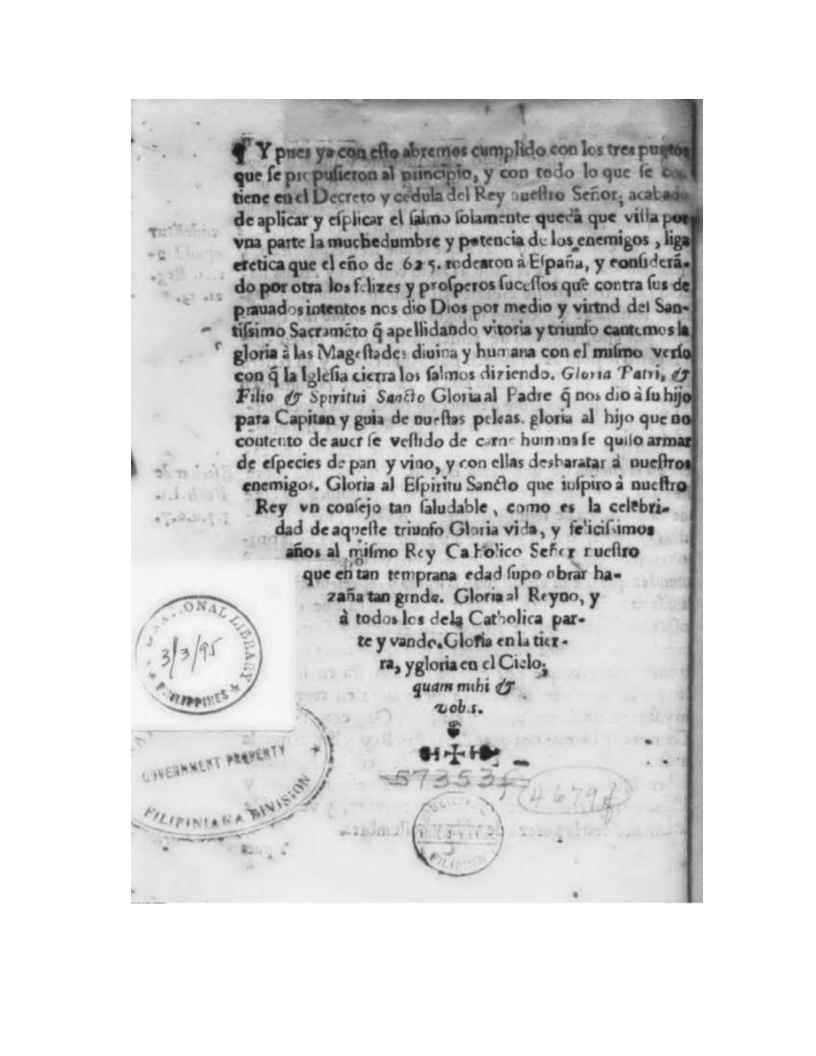 ¶ Y pues ya con eſto abremos cumplido con los tres puntos
que ſe propuſieron al principio, y con todo lo que ſe
tiene en el Decreto y cedula del Rey nueſtro Señor, acabado
de aplicar y eſplicar el ſalmo ſolamente queda que viſta por
vna parte la muchedumbre y potencia de los enemigos, liga
eretica que el eño de 625. rodearon à Eſpaña, y conſiderã-
do por otra los felizes y proſperos ſuceſſos que contra ſus de
prauados intentos nos dio Dios por medio y virtnd del San-
tiſſimo Sacramẽto q̃ apellidando vitoria y triunfo cantemos la
gloria à las Mageſtades diuina y humana con el miſmo verſo
con q̃ la Igleſia cierra los ſalmos diziendo. Gloria Patri, &
Filio & Spiritui Sancto Gloria al Padre q̃ nos dio à ſu hijo
para Capitan y guia de nueſtas peleas. gloria al hijo que no
contento de auer ſe veſtido de carne humana ſe quiſo armar
de eſpecies de pan y vino, y con ellas desbaratar à nueſtros
enemigos. Gloria al Eſpiritu Sancto que inſpiro à nueſtro
Rey vn conſejo tan ſaludable, como es la celebri-
dad de aqueſte triunfo Gloria vida, y feliciſsimos
años al miſmo Rey Catholico Señor nueſtro
que en tan temprana edad ſupo obrar ha-
zaña tan grnde. Gloria al Reyno, y
à todos los dela Catholica par-
te y vando. Gloria en la tier-
ra, y gloria en el Cielo;
quam mihi &
vobis.
NATIONAL LIBRARY
3/3/95
PHILIPPINES
GOVERNMENT PROPERTY
FILIPINIANA DIVISION
4679f